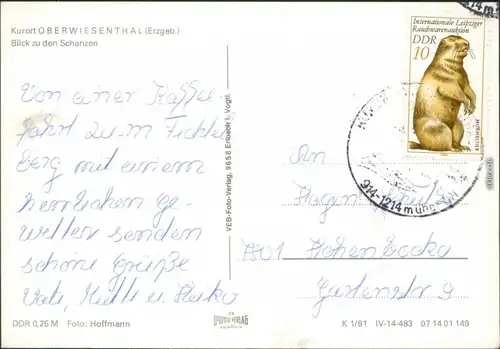 Kurort OBERWIESENTHAL (Erzgeb.)
Blick zu den Schanzen
Von einer Kaffee
fahrt zum Fichtel
berg mit einem
herrlichen Ge-
wetter senden
schöne Grüße
Vati, Mutti u. Heiko
DDR 0,25 M Foto: Hoffmann
VEB-Foto-Verlag, 9658 Erlbach i. Vogtl.
FOTO-VERLAG
Internationale Leipziger
Rauchwarenauktion
DDR
10
914-1214 m ü
An
Hagen
Hohenbocka
Gartenstr 9
K 1/81 IV-14-483 07 14 01 149